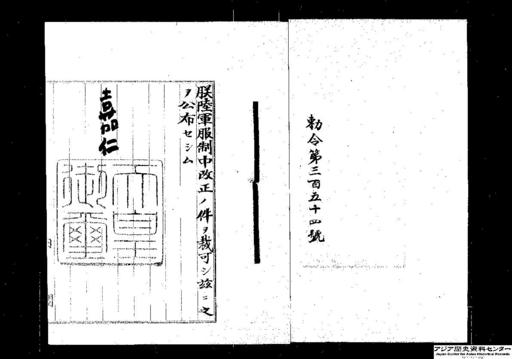 勅令第三百五十四號
朕陸軍服制中改正ノ件ヲ裁可シ茲ニ之
ヲ公布セシム
嘉仁
天皇
御璽
内閣
アジア歴史資料センター
Japan Center for Asian Historical Records